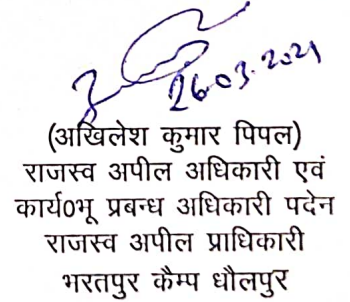 26.03.2021
(अखिलेश कुमार पिपल)
राजस्व अपील अधिकारी एवं
कार्य0भू प्रबन्ध अधिकारी पदेन
राजस्व अपील प्राधिकारी
भरतपुर कैम्प धौलपुर